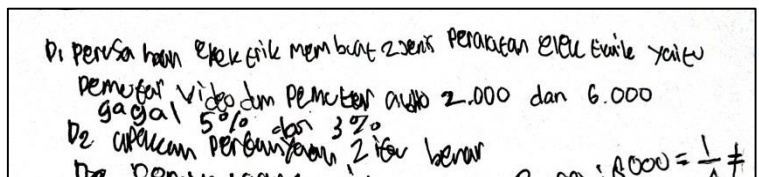 D1 perusahaan elektrik membuat 2 jenis peralatan elektrik yaitu
pemutar video dan pemutar audio 2.000 dan 6.000
gagal 5% dan 3%
D2 apakah pertanyaan 2 itu benar
: 8000 = 1/4 ≠